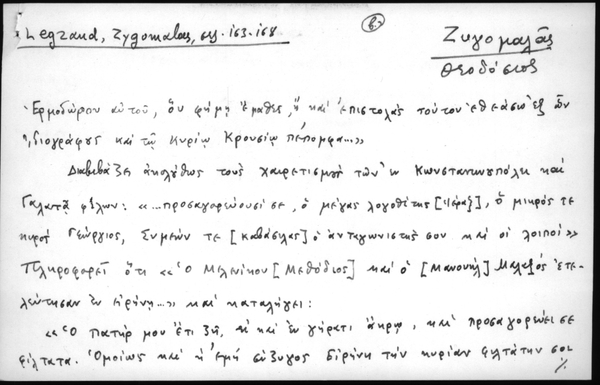 Legrand, Zygomalas, σσ. 163-168
β.
Ζυγομαλᾶς
Θεοδόσιος
Ἑρμοδώρου αὐτοῦ, ὃν φήμῃ ἔμαθες, ἢ καὶ ἐπιστολὰς τούτου ἐθεάσω ἐξ ὧν
ἰδιογράφως καὶ τῷ κυρίῳ Κρουσίῳ πέπομφα...»
Διαβιβάζει ἀκολούθως τοὺς χαιρετισμοὺς τῶν ἐν Κωνσταντινουπόλει καὶ
Γαλατᾷ φίλων: «...προσαγορεύουσί σε, ὁ μέγας λογοθέτης [Ἱέραξ], ὁ μικρός τε
κυρὸς Γεώργιος, Συμεών τε [Καβάσιλας] ὁ ἀνταγωνιστής σου καὶ οἱ λοιποί»
Πληροφορεῖ ὅτι «Ὁ Μελενίκου [Μεθόδιος] καὶ ὁ [Μανουὴλ] Μαλαξός ἐτε-
λεύτησαν ἐν εἰρήνῃ...» καὶ καταλήγει:
«Ὁ πατήρ μου ἔτι ζῇ, εἰ καὶ ἐν γήρατι ἄκρῳ, καὶ προσαγορεύει σε
φίλτατα. Ὁμοίως καὶ ἡ ἐμὴ σύζυγος Εἰρήνη τὴν κυρίαν φιλτάτην σοι
./.